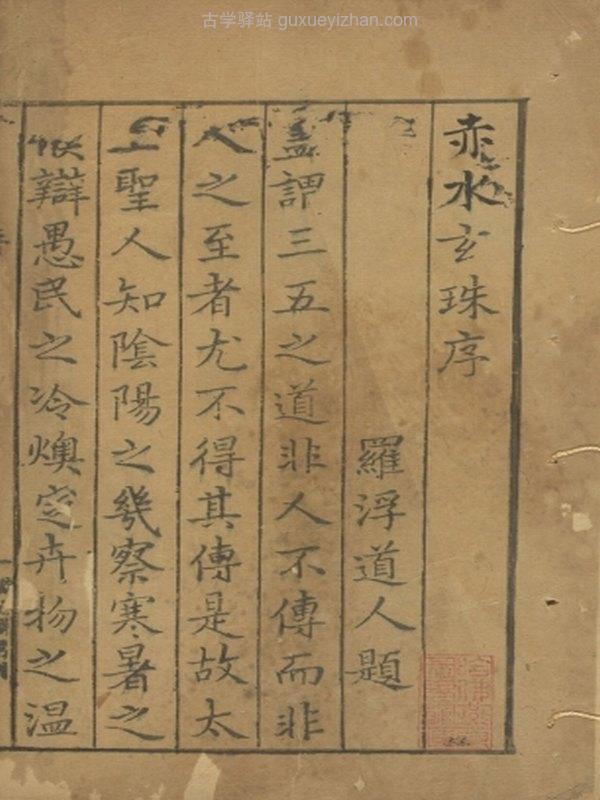 古学驿站 guxueyizhan.com
赤水玄珠序
羅浮道人題
盖謂三五之道非人不傳而非
人之至者尤不得其傳是故太
上聖人知陰陽之幾察寒暑之
辯愚民之冷燠定卉物之温